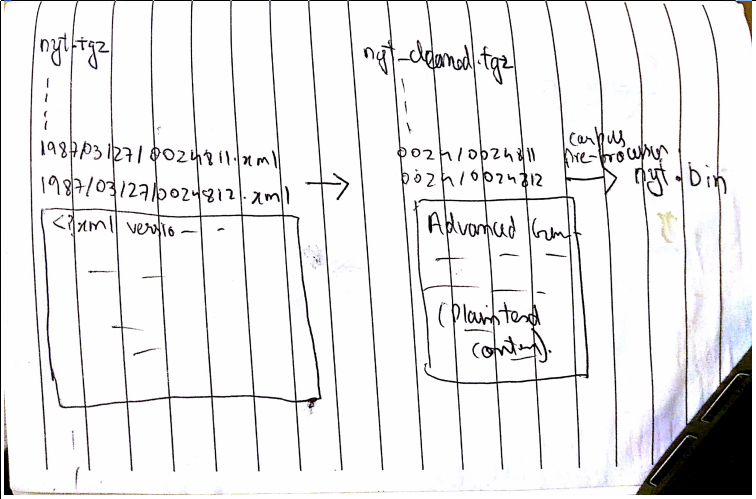 nyt.tgz
1987/03/27/0024811.xml
1987/03/27/0024812.xml
<?xml versio - -
nyt_cleaned.tgz
0024/0024811
0024/0024812
Advanced
(Plaintext
content).
corpus
pre-processor
nyt.bin